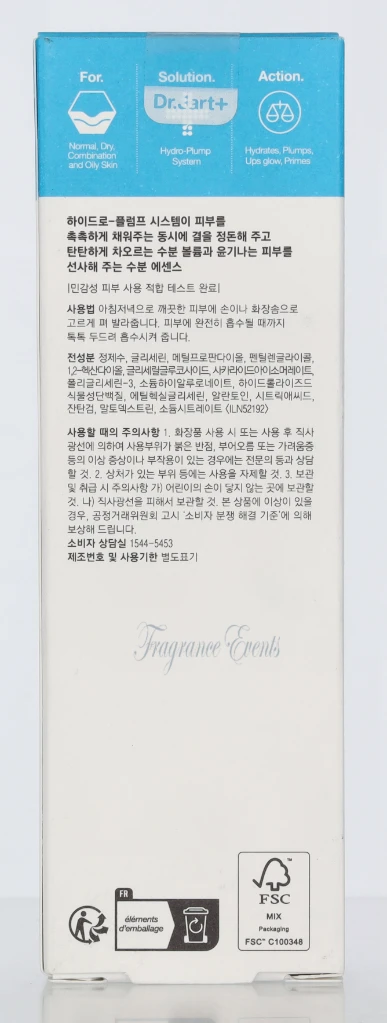 For.
Normal, Dry,
Combination
and Oily Skin
Solution.
Dr.Jart+
Hydro-Plump
System
Action.
Hydrates, Plumps,
Lips glow, Primes
하이드로-플럼프 시스템이 피부를
촉촉하게 채워주는 동시에 결을 정돈해 주고
탄탄하게 차오르는 수분 볼륨과 윤기나는 피부를
선사해 주는 수분 에센스
|민감성 피부 사용 적합 테스트 완료|
사용법 아침저녁으로 깨끗한 피부에 손이나 화장솜으로
고르게 펴 발라줍니다. 피부에 완전히 흡수될 때까지
톡톡 두드려 흡수시켜 줍니다.
전성분 정제수, 글리세린, 메틸프로판다이올, 펜틸렌글라이콜,
1,2-헥산다이올, 글리세릴글루코사이드, 사카라이드아이소머레이트,
폴리글리세린-3, 소듐하이알루로네이트, 하이드롤라이즈드
식물성단백질, 에틸헥실글리세린, 알란토인, 시트릭애씨드,
잔탄검, 말토덱스트린, 소듐시트레이트 (ILN52192)
사용할 때의 주의사항 1. 화장품 사용 시 또는 사용 후 직사
광선에 의하여 사용부위가 붉은 반점, 부어오름 또는 가려움증
등의 이상 증상이나 부작용이 있는 경우에는 전문의 등과 상담
할 것. 2. 상처가 있는 부위 등에는 사용을 자제할 것. 3. 보관
및 취급 시 주의사항 가) 어린이의 손이 닿지 않는 곳에 보관할
것. 나) 직사광선을 피해서 보관할 것. 본 상품에 이상이 있을
경우, 공정거래위원회 고시 '소비자 분쟁 해결 기준'에 의해
보상해 드립니다.
소비자 상담실 1544-5453
제조번호 및 사용기한 별도표기
Fragrance Events
FR
éléments
d'emballage
FSC
MIX
Packaging
FSC™ C100348